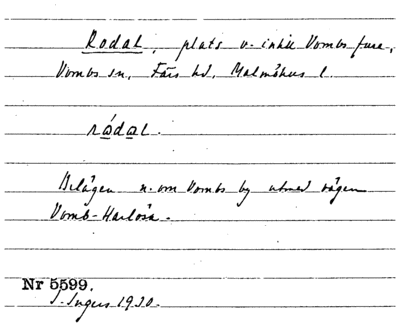 Rodal, plats o. inhk Vombs fure,
Vombs sn, Färs hd, Malmöhus l.
rådal.
Belägen n. om Vombs by utmed vägen
Vomb-Harlösa.
Nr 5599.
I. Ingers 1930.